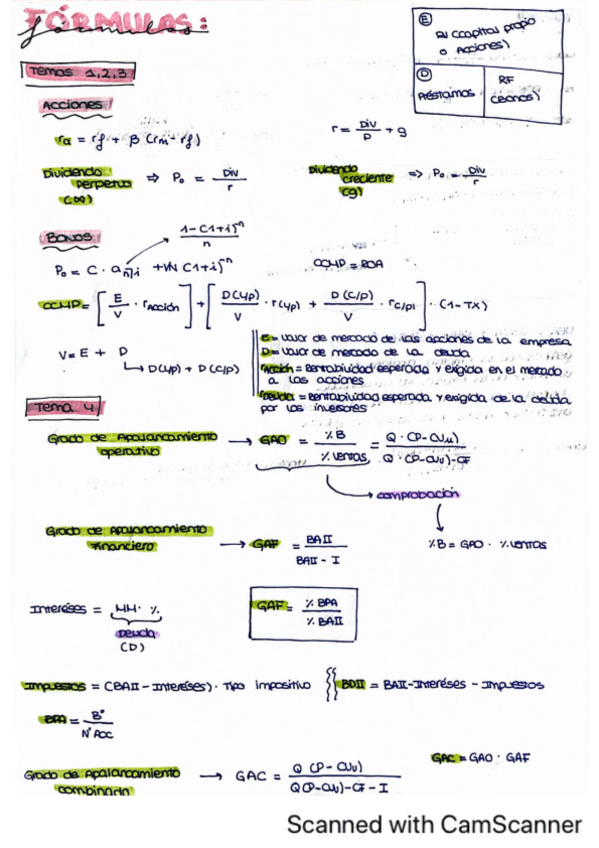 FÓRMULAS:
fórmulas
E
RV (capital propio
o Acciones)
D
Préstamos
RF
(Bonos)
Temas 1,2,3
Acciones
ra = rf + β (rm - rf)
r = Div/P + g
Dividendo
Perpetuo
(∞)
⇒ P₀ = Div/r
Dividendo
creciente
(g)
⇒ P₀ = Div/r
Bonos
1-(1+i)⁻ⁿ/n
P₀ = C · a n⌉i + VN (1+i)⁻ⁿ
CCMP = ROA
CCMP = [E/V · rAcción] + [D(L/p)/V · r(L/p) + D(C/p)/V · rC/p] · (1-TX)
V = E + D
→ D(L/p) + D(C/p)
E = Valor de mercado de las acciones de la empresa
D = Valor de mercado de la deuda
rAcción = Rentabilidad esperada y exigida en el mercado
a las acciones
rDeuda = Rentabilidad esperada y exigida de la deuda
por los inversores
Tema 4
Grado de Apalancamiento
operativo
→ GAO = %B/% ventas = Q · (P-CVu)/Q · (P-CVu)-CF
comprobación
%B = GAO · % ventas
Grado de Apalancamiento
Financiero
→ GAF = BAII/BAII - I
Intereses = MM · %
Deuda
(D)
GAF = % BPA/% BAII
Impuestos = (BAII - Intereses) · Tipo impositivo
BDII = BAII - Intereses - Impuestos
BPA = Bº/Nº Acc
GAC = GAO · GAF
Grado de Apalancamiento
combinado
→ GAC = Q (P-CVu)/Q(P-CVu)-CF-I
Scanned with CamScanner